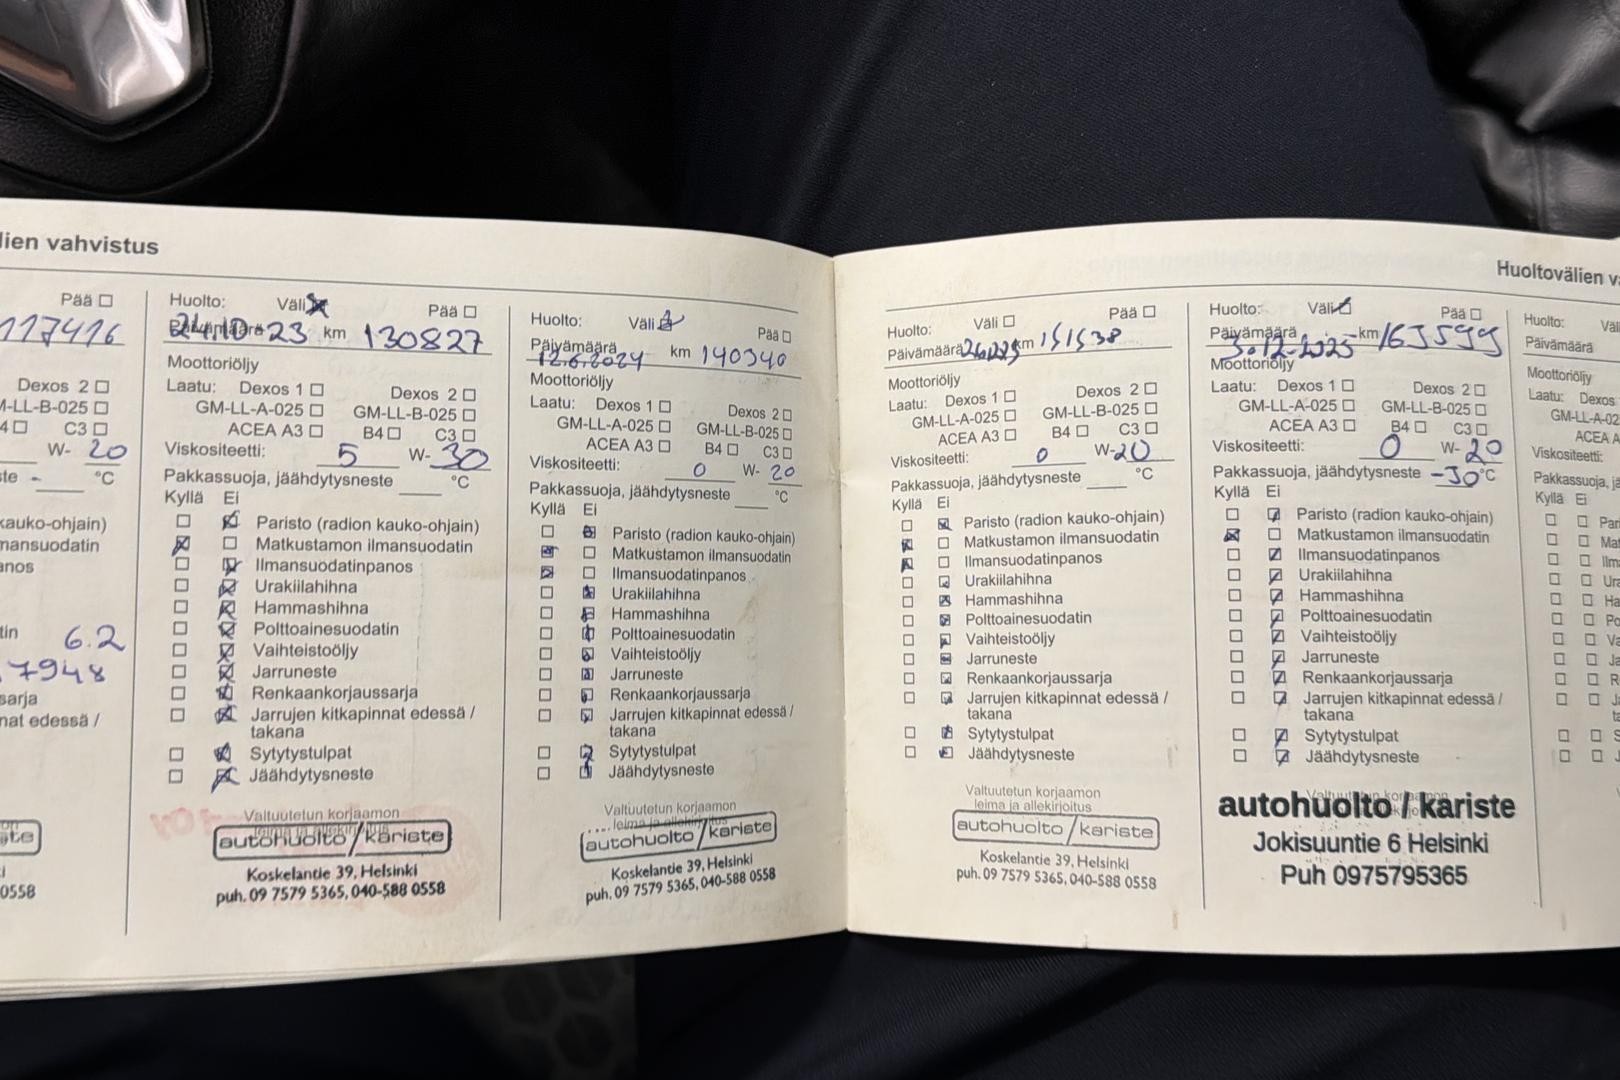 lien vahvistus
Pää
117416
Dexos 2
M-LL-B-025
C3
W- 20
°C
kauko-ohjain)
mansuodatin
6.2
7948
sarja
nat edessä /
0558
Huolto: Väli Pää
Päivämäärä 24.10.23 km 130827
Moottoriöljy
Laatu: Dexos 1 Dexos 2
GM-LL-A-025 GM-LL-B-025
ACEA A3 B4 C3
Viskositeetti: 5 W- 30
Pakkassuoja, jäähdytysneste °C
Kyllä Ei
Paristo (radion kauko-ohjain)
Matkustamon ilmansuodatin
Ilmansuodatinpanos
Urakiilahihna
Hammashihna
Polttoainesuodatin
Vaihteistoöljy
Jarruneste
Renkaankorjaussarja
Jarrujen kitkapinnat edessä /
takana
Sytytystulpat
Jäähdytysneste
Valtuutetun korjaamon
leima ja allekirjoitus
autohuolto/kariste
Koskelantie 39, Helsinki
puh. 09 7579 5365, 040-588 0558
Huolto: Väli Pää
Päivämäärä 12.6.2024 km 140340
Moottoriöljy
Laatu: Dexos 1 Dexos 2
GM-LL-A-025 GM-LL-B-025
ACEA A3 B4 C3
Viskositeetti: 0 W- 20
Pakkassuoja, jäähdytysneste °C
Kyllä Ei
Paristo (radion kauko-ohjain)
Matkustamon ilmansuodatin
Ilmansuodatinpanos
Urakiilahihna
Hammashihna
Polttoainesuodatin
Vaihteistoöljy
Jarruneste
Renkaankorjaussarja
Jarrujen kitkapinnat edessä /
takana
Sytytystulpat
Jäähdytysneste
Valtuutetun korjaamon
leima ja allekirjoitus
autohuolto/kariste
Koskelantie 39, Helsinki
puh. 09 7579 5365, 040-588 0558
Huolto: Väli Pää
Päivämäärä km 151538
Moottoriöljy
Laatu: Dexos 1 Dexos 2
GM-LL-A-025 GM-LL-B-025
ACEA A3 B4 C3
Viskositeetti: 0 W-20
Pakkassuoja, jäähdytysneste °C
Kyllä Ei
Paristo (radion kauko-ohjain)
Matkustamon ilmansuodatin
Ilmansuodatinpanos
Urakiilahihna
Hammashihna
Polttoainesuodatin
Vaihteistoöljy
Jarruneste
Renkaankorjaussarja
Jarrujen kitkapinnat edessä /
takana
Sytytystulpat
Jäähdytysneste
Valtuutetun korjaamon
leima ja allekirjoitus
autohuolto/kariste
Koskelantie 39, Helsinki
puh. 09 7579 5365, 040-588 0558
Huoltovälien va
Huolto: Väli Pää
Päivämäärä 3.12.2025 km 163599
Moottoriöljy
Laatu: Dexos 1 Dexos 2
GM-LL-A-025 GM-LL-B-025
ACEA A3 B4 C3
Viskositeetti: 0 W- 20
Pakkassuoja, jäähdytysneste -30 °C
Kyllä Ei
Paristo (radion kauko-ohjain)
Matkustamon ilmansuodatin
Ilmansuodatinpanos
Urakiilahihna
Hammashihna
Polttoainesuodatin
Vaihteistoöljy
Jarruneste
Renkaankorjaussarja
Jarrujen kitkapinnat edessä /
takana
Sytytystulpat
Jäähdytysneste
autohuolto / kariste
Jokisuuntie 6 Helsinki
Puh 0975795365
Huolto: Väli
Päivämäärä
Moottoriöljy
Laatu: Dexos
GM-LL-A-02
ACEA A
Viskositeetti:
Pakkassuoja, jä
Kyllä Ei